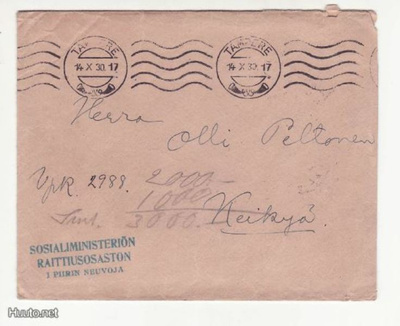 TAMPERE
14.X.30.17
TAMPERE
14.X.30.17
Herra
Olli Peltonen
Vpk. 2988.
2000.-
1000
3000.
Keikyä.
SOSIALIMINISTERIÖN
RAITTIUSOSASTON
I PIIRIN NEUVOJA
Huuto.net